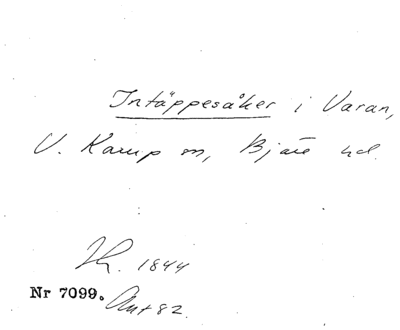 Intäppesåker i Varan,
V. Karup sn, Bjäre hd.
1844
Nr 7099.
Ant 82.